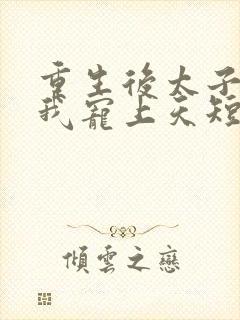 重生後太子
我寵上天短
傾雲之戀